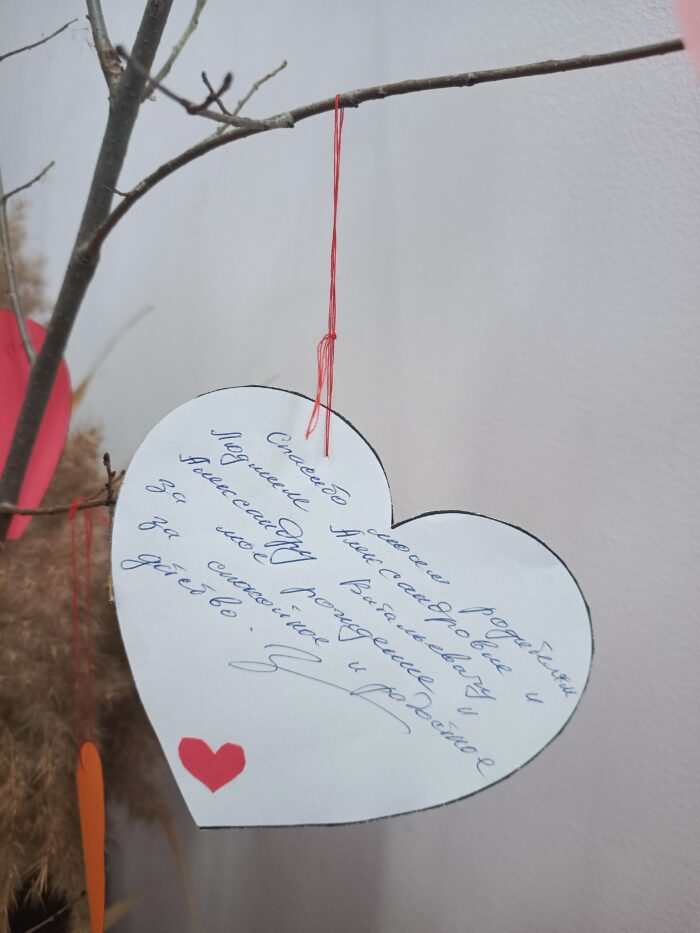 Спасибо моим родителям
Людмиле Александровне и
Александру Витальевичу
за мое рождение и
за спокойное и радостное
детство.